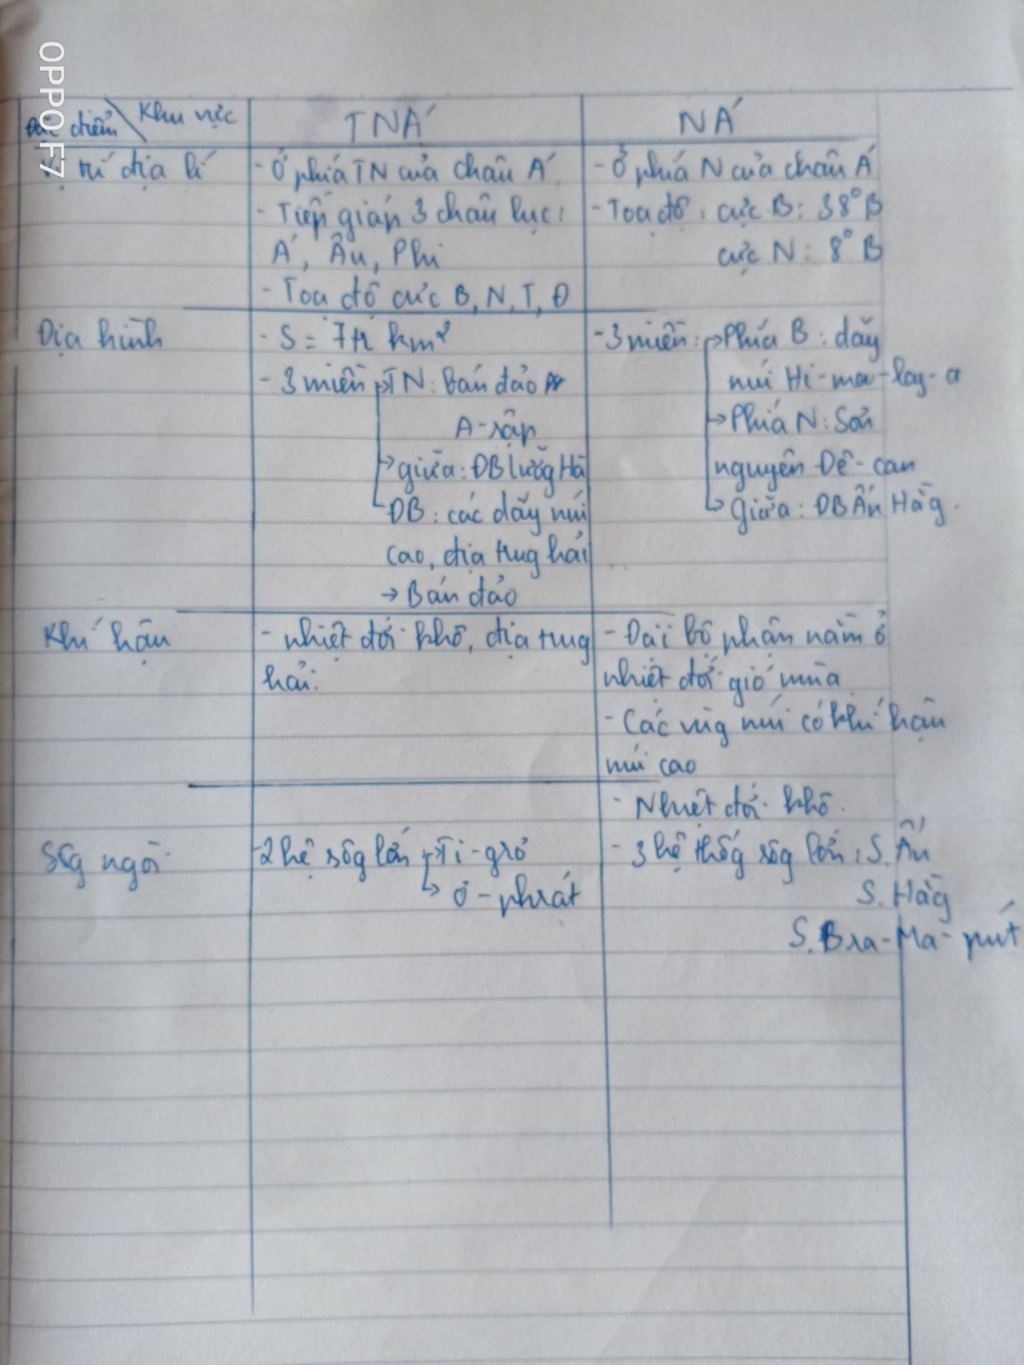 OPPO F7
Đặc điểm \ Khu vực
TNÁ
NÁ
Vị trí địa lí
- Ở phía TN của châu Á
- Tiếp giáp 3 châu lục:
Á, Âu, Phi
- Toạ độ cực B, N, T, Đ
- Ở phía N của châu Á
- Toạ độ: cực B: 38° B
cực N: 8° B
Địa hình
- S = 7tr km²
- 3 miền → TN: Bán đảo
A-rập
→ giữa: ĐB lưỡg Hà
ĐB: các dãy núi
cao, địa trug hải
→ Bán đảo
- 3 miền: → Phía B: dãy
núi Hi-ma-lay-a
→ Phía N: Sơn
nguyên Đê-can
→ Giữa: ĐB Ấn Hằg.
Khí hậu
- nhiệt đới khô, địa trug
hải.
- Đại bộ phận nằm ở
nhiệt đới gió mùa
- Các vùg núi có khí hậu
núi cao
- Nhiệt đới khô.
Sôg ngòi
- 2 hệ sôg lớn → Ti-grơ
→ Ơ-phrát
- 3 hệ thốg sôg lớn: S. Ấn
S. Hằg
S. Bra-Ma-pút